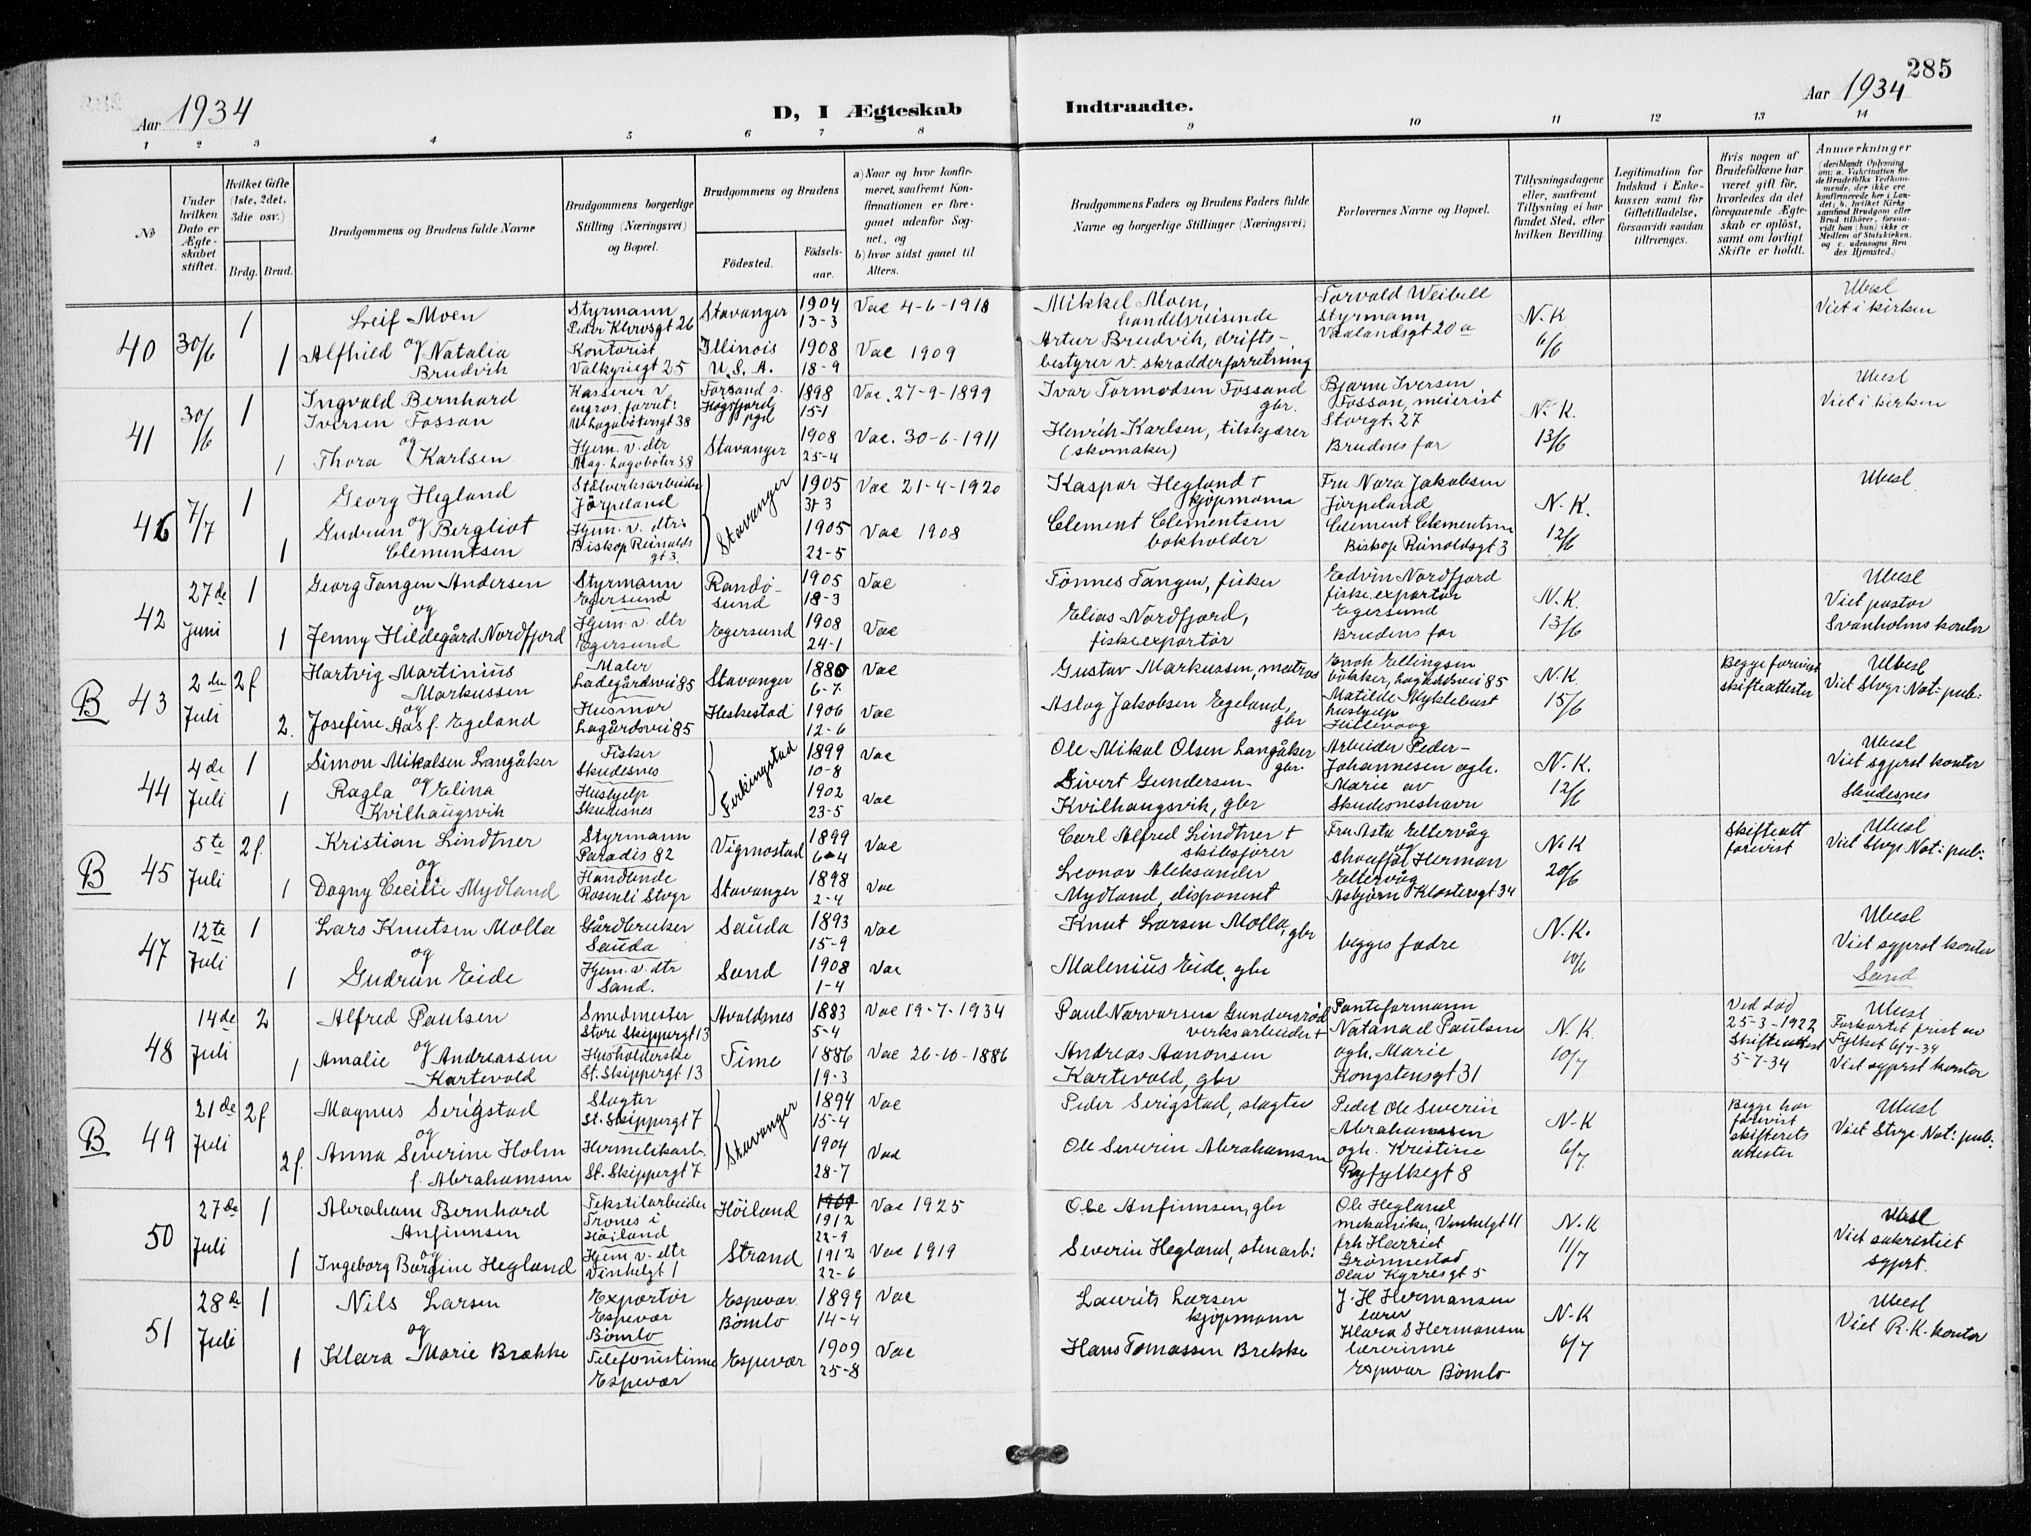 285
Aar 1934
D, I Ægteskab Indtraadte.
Aar 1934
1 2 3 4 5 6 7 8 9 10 11 12 13 14
No
Under hvilken Dato er Ægteskabet stiftet.
Hvilket Gifte (1ste, 2det, 3die osv.)
Brdg. Brud.
Brudgommens og Brudens fulde Navne
Brudgommens borgerlige Stilling (Næringsvei) og Bopæl.
Brudgommens og Brudens
Fødested.
Fødsels-aar.
a) Naar og hvor konfirmeret, saafremt Konfirmationen er foregaaet udenfor Sognet, og
b) hvor sidst gaaet til Alters.
Brudgommens Faders og Brudens Faders fulde Navne og borgerlige Stillinger (Næringsvei)
Forlovernes Navne og Bopæl.
Tillysningsdagene eller, saafremt Tillysning ei har fundet Sted, efter hvilken Bevilling.
Legitimation for Indskud i Enkekassen samt for Giftetilladelse, forsaavidt saadan tiltrænges.
Hvis nogen af Brudefolkene har været gift før, hvorledes da det foregaaende Ægteskab er opløst, samt om lovligt Skifte er holdt.
Anmærkninger (deriblandt Oplysning om: a. Vakcination for de Brudefolks Vedkommende, der ikke ere konfirmerede her i Landet; b. hvilket Kirkesamfund Brudgom eller Brud tilhører, forsaavidt han (hun) ikke er Medlem af Statskirken, og c. udensogns Brudes Hjemsted.)
40 30/6 1 Leif Moen Styrmann Peder Klowsgt 26 Stavanger 1904 13-3 Vac 4-6-1918 Mikkel Moen, handelsreisende Torvald Weibell Styrmann Vaalandsgt 20 a N.K. 6/6 Ubesl Viet i kirken
og
1 Alfhild Natalia Brudvik Kontorist Valkyriegt 25 Illinois U.S.A. 1908 18-9 Vac 1909 Artur Brudvik, drifts-bestyrer v. skrædderforretning
41 30/6 1 Ingvald Bernhard Iversen Fossan Kasserer v. engros. forret: Forsand s. Høgsfjord pgd 1898 15-1 Vac. 27-9-1899 Ivar Tormodsen Fossand gbr. Bjarne Iversen Fossan, meierist Storgt. 27 N.K. 13/6 Ubesl Viet i kirken
og
1 Thora Karlsen Hjem. v. dtr Mag. Lagabøter 38 Stavanger 1908 25-4 Vac. 30-6-1911 Henrik Karlsen, tilskjærer (skomaker) Brudens far
46 7/7 1 Georg Hegland Stålverksarbeider Jørpeland Stavanger 1905 31-3 Vac 21-4-1920 Kaspar Hegland † kjøpmann Fru Nora Jakobsen Jørpeland N.K. 12/6 Ubesl
og
1 Gudrun Bergliot Clementsen Hjem. v. dtr: Biskop Reinalds gt 3. 1905 22-5 Vac 1908 Clement Clementsen bokholder Clement Clementsen Biskop Reinoldsgt 3
42 27de Juni 1 Georg Tangen Andersen Styrmann Egersund Randøsund 1905 18-3 Vac Tønnes Tangen, fisker Edvin Nordfjord fiskeexportør Egersund N.K. 13/6 Ubesl Viet pastor Svanholms kontor
og
1 Jenny Hildegård Nordfjord Hjem. v. dtr Egersund Egersund 1908 24-1 Vac Elias Nordfjord, fiskeexportør Brudens far
B 43 2den Juli 2f. Hartvig Martinius Markussen Maler Ladegårdsvei 85 Stavanger 1880 6-7 Vac Gustav Markussen, matros Enok Ellingsen bøkker, Lagårdsvei 85 N.K. 15/6 Begge forevist skifteattester Ubesl Viet Stvgr Not: pub:
og
2. Josefine Aas f. Egeland Husmor Lagårdsvei 85 Heskestad 1906 12-6 Vac Aslag Jakobsen Egeland, gbr Matilde Myklebust hushjelp Hillevaag
44 4de Juli 1 Simon Mikalsen Langåker Fisker Skudesnes Ferkingstad 1899 10-8 Vac Ole Mikal Olsen Langåker gbr. Arbeider Peder Johannesen ogh. Marie av Skudesneshavn N.K. 12/6 Ubesl Viet sgprst kontor Skudesnes
og
1 Ragla Velina Kvilhaugsvik Hushjelp Skudesnes 1902 23-5 Vac Sivert Gundersen Kvilhaugsvik, gbr
B 45 5te Juli 2f. Kristian Lindtner Styrmann Paradis 82 Vigmostad 1899 6-4 Vac Carl Alfred Lindtner † skibsfører Fru Asta Eltervåg N.K 20/6 Skifteatt forevist Ubesl Viet Stvgr Not: pub:
og
1 Dagny Cecilie Mydland Handlende Rosenli Stvgr Stavanger 1898 2-4 Vac Leonor Aleksander Mydland, disponent og Chauffør Herman Eltervåg Asbjørn Klostersgt 34
47 12te Juli 1 Lars Knutsen Molla Gårdbruker Sauda Sauda 1893 15-9 Vac Knut Larsen Molla, gbr begges fædre N.K. 10/6 Ubesl Viet sgprst kontor Sand
og
1 Gudrun Eide Hjem. v. dtr Sand. Sand 1908 1-4 Vac Malenius Eide, gbr
48 14de Juli 2 Alfred Paulsen Smedmester Store Skippergt 13 Avaldsnes 1883 5-4 Vac 19-7-1934 Paul Narvarsen Gundersrød verksarbeider † Panteformann Natanael Paulsen ogh. Marie Kongstensgt 31 N.K. 10/7 Ved død 25-3-1922 Skifteattest 5-7-34 Ubesl Forkortet frist av Fylket 6/7-34 Viet sgprst kontor
og
1 Amalie Andreassen Kartevold Husholderske St. Skippergt 13 Time 1886 19-3 Vac 26-10-1886 Andreas Aanonsen Kartevold, gbr
B 49 21de Juli 2f Magnus Serigstad Slagter St. Skippergt 7 Stavanger 1894 15-4 Vac Peder Serigstad, slagter Peder Ole Severin Abrahamsen ogh. Kristine Ryfylkegt 8 N-K 6/7 Begge har forevist skifterets attester Ubesl Viet Stvgr Not: pub:
og
2f. Anna Severine Holm f. Abrahamsen Hermetikarb. St. Skippergt 7 1904 28-7 Vac Ole Severin Abrahamsen
50 27de Juli 1 Abraham Bernhard Anfinnsen Tekstilarbeider Trones i Høiland Høiland 1909 1912 22-9 Vac 1925 Ole Anfinnsen, gbr Ole Hegland mekaniker, Vinkelgt 11 N.K 11/7 Ubesl Viet sakristiet sgprt.
og
1 Ingeborg Bargine Hegland Hjem v. dtr Vinkelgt 1 Strand 1912 22-6 Vac 1919 Severin Hegland, stenarb: frk Harriet Grønnestad Olav Kyrresgt 5
51 28de Juli 1 Nils Larsen Exportør Espevær Bømlo Espevær Bømlo 1899 14-4 Vac Laurits Larsen kjøpmann J. H Hermansen lærer N-K 6/7 Ubesl Viet R.K. kontor
og
1 Klara Marie Brække Telefonistinne Espevær Espevær 1909 25-8 Vac Hans Tomassen Brekke Klara S Hermansen lærerinne Espevær Bømlo